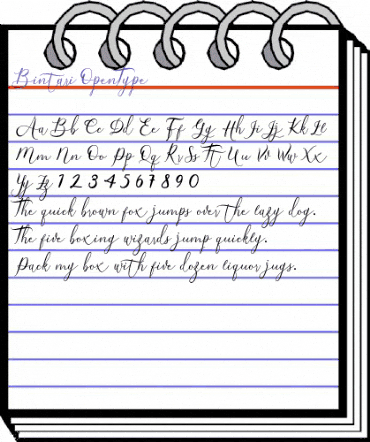 Bintari OpenType
Aa Bb Cc Dd Ee Ff Gg Hh Ii Jj Kk Ll
Mm Nn Oo Pp Qq Rr Ss Tt Uu Vv Ww Xx
Yy Zz 1 2 3 4 5 6 7 8 9 0
The quick brown fox jumps over the lazy dog.
The five boxing wizards jump quickly.
Pack my box with five dozen liquor jugs.